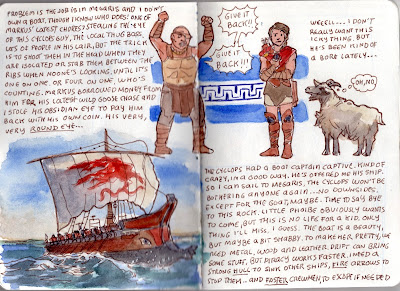 PROBLEM IS THE JOB IS IN MEGARIS AND I DON'T
OWN A BOAT, THOUGH I KNOW WHO DOES! ONE OF
MARKUS' LATEST CHORES? STEALING THE EYE
OF THIS CYCLOPS GUY, THE LOCAL THUG BOSS.
LOTS OF PEOPLE IN HIS LAIR, BUT THE TRICK
IS TO SHOOT THEM IN THE HEAD WHEN THEY
ARE ISOLATED OR STAB THEM BETWEEN THE
RIBS WHEN NOONE'S LOOKING, UNTIL IT'S
ONE ON ONE. OR FOUR ON ONE, WHO'S
COUNTING. MARKUS BORROWED MONEY FROM
HIM FOR HIS LATEST WILD GOOSE CHASE AND
I STOLE HIS OBSIDIAN EYE TO PAY HIM
BACK WITH HIS OWN COIN. HIS VERY,
VERY ROUND EYE...
GIVE IT
BACK!!!
GIVE IT
BACK!!!
WEEELL... I DON'T
REALLY WANT THIS
ICKY THING, BUT
HE'S BEEN KIND OF
A BORE LATELY...
OH, NO.
THE CYCLOPS HAD A BOAT CAPTAIN CAPTIVE. KIND OF
CRAZY, IN A GOOD WAY. HE'S OFFERED ME HIS SHIP.
SO I CAN SAIL TO MEGARIS. THE CYCLOPS WON'T BE
BOTHERING ANYONE AGAIN... NO DOWNSIDES,
EXCEPT FOR THE GOAT, MAYBE. TIME TO SAY BYE
TO THIS ROCK. LITTLE PHOIBE OBVIOUSLY WANTS
TO COME, BUT THIS IS NO LIFE FOR A KID. ONLY
THING I'LL MISS, I GUESS. THE BOAT IS A BEAUTY,
BUT MAYBE A BIT SHABBY. TO MAKE HER PRETTY, WE
NEED METAL, WOOD AND LEATHER. DRIFT CAN BRING
SOME STUFF, BUT PIRACY WORKS FASTER. I NEED A
STRONG HULL TO SINK OTHER SHIPS, FIRE ARROWS TO
STOP THEM... AND FASTER CREWMEN TO ESCAPE IF NEEDED